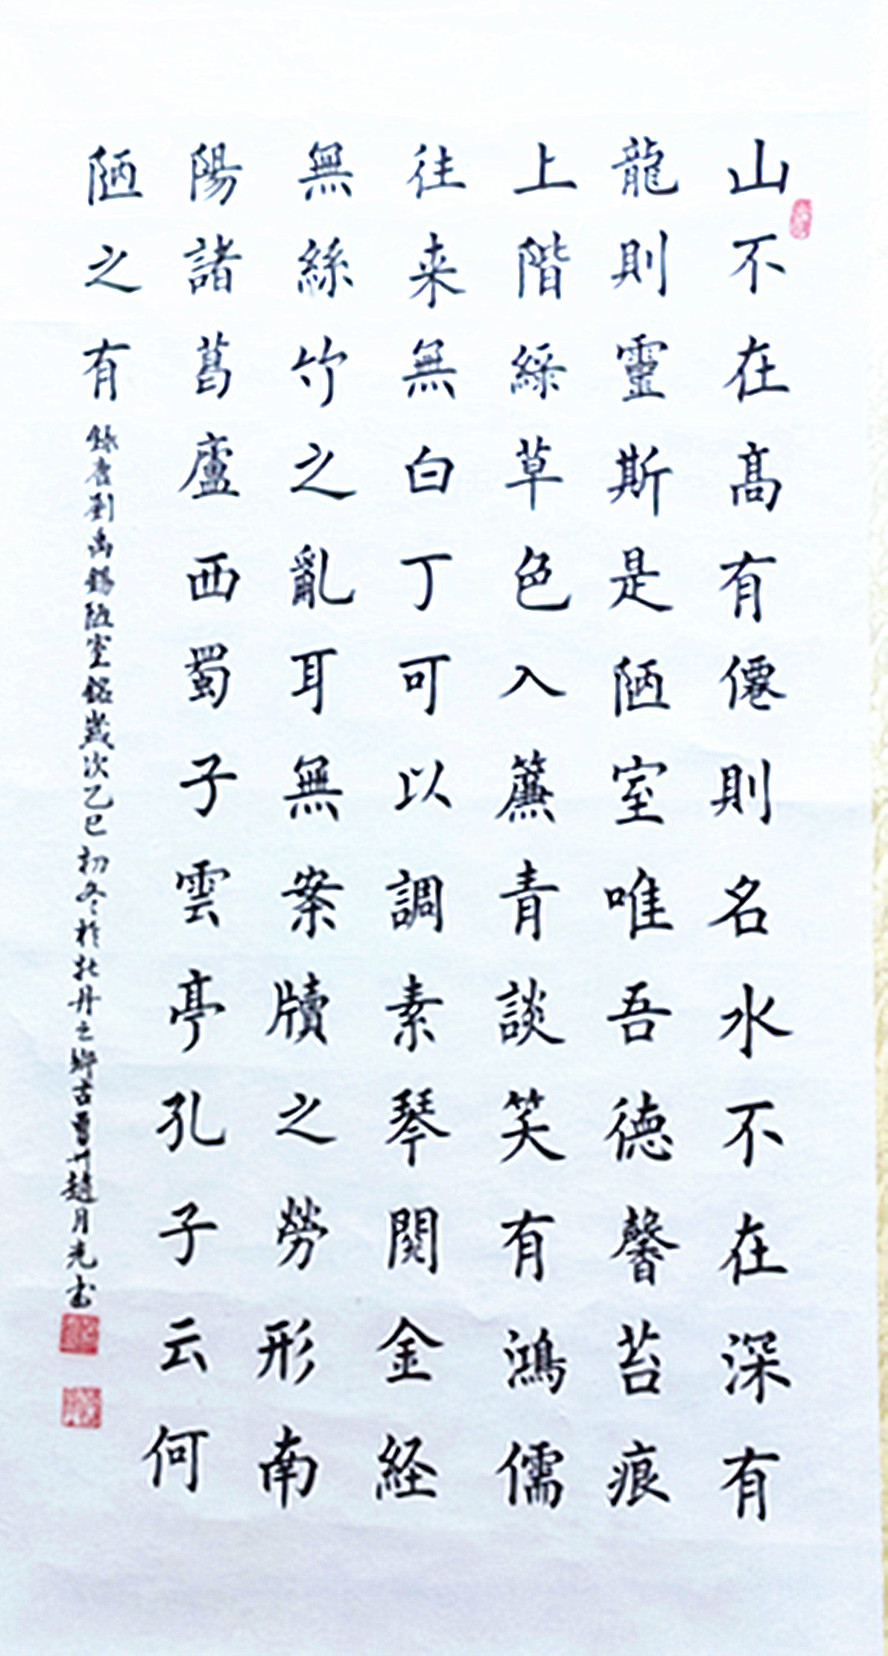 山不在高有僊則名水不在深有
龍則靈斯是陋室唯吾德馨苔痕
上階綠草色入簾青談笑有鴻儒
往来無白丁可以調素琴閱金経
無絲竹之亂耳無案牘之勞形南
陽諸葛廬西蜀子雲亭孔子云何
陋之有
錄唐劉禹錫陋室銘歲次乙巳初冬於牡丹之鄉古曹州趙月光書